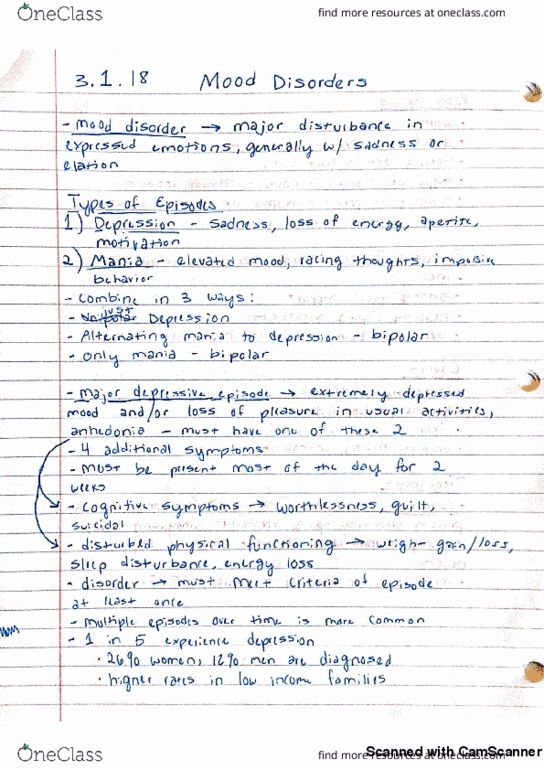 OneClass
find more resources at oneclass.com
3.1.18 Mood Disorders
- mood disorder → major disturbance in
expressed emotions, generally w/ sadness or
elation
Types of Episodes
1) Depression - sadness, loss of energy, apetite,
motivation
2) Mania - elevated mood, racing thoughts, impulsive
behavior
- Combine in 3 ways:
- just Depression
- Alternating mania to depression - bipolar
- only mania - bipolar
- major depressive episode → extremely depressed
mood and/or loss of pleasure in usual activities,
anhedonia - must have one of these 2
- 4 additional symptoms
- must be present most of the day for 2
weeks
- cognitive symptoms → worthlessness, guilt,
suicidal
- disturbed physical functioning → weight gain/loss,
sleep disturbance, energy loss
- disorder → must meet criteria of episode
at least once
- multiple episodes over time is more common
- 1 in 5 experience depression
• 26% women, 12% men are diagnosed
• higher rates in low income families
OneClass
find more resources at oneclass.com
Scanned with CamScanner